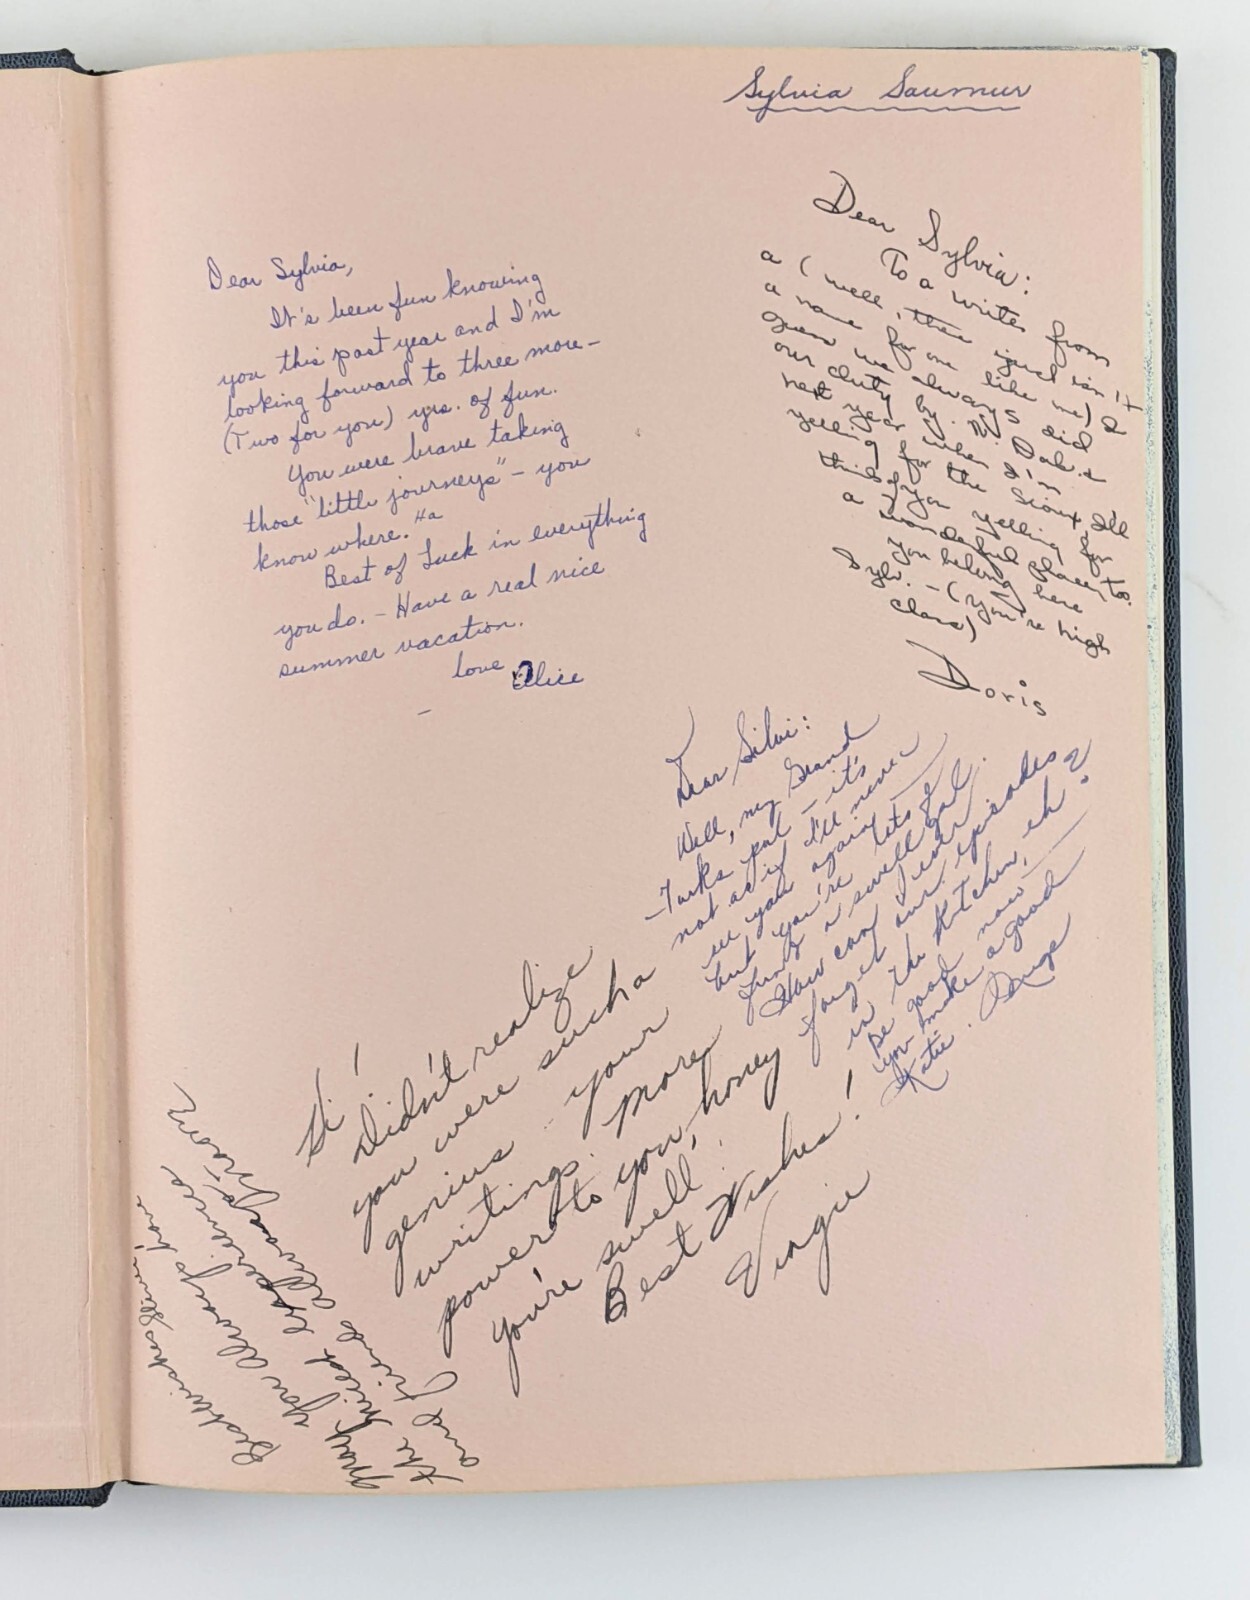 Sylvia Saumur
Dear Sylvia,
It's been fun knowing
you this past year and I'm
looking forward to three more-
(Two for you) yrs. of fun.
You were brave taking
those "little journeys" - you
know where. Ha
Best of Luck in everything
you do. - Have a real nice
summer vacation.
love Alice
Dear Sylvia:
To a writer from
a (well, there just isn't
a name for one like me) I
guess we always did
our duty by N. Dak. &
next year when I'm
yelling for the Sioux, I'll
think of you yelling for
a wonderful place, too.
you belong here
Sylv. - (you're high
class)
Doris
Dear Silvi:
Well, my Grand
Forks pal - it's
not as if I'll never
see you again -
but you're lots of
fun & a swell gal.
How can I ever
forget our episodes
in the kitchen, eh?
Be good now -
you make a good
Katie.
Hi!
Didn't realize
you were such a
genius - your
writings. More
power to you, honey
you're swell.
Best Wishes!
Virgie
Best wishes
may you always have
the nicest experiences
and friends always